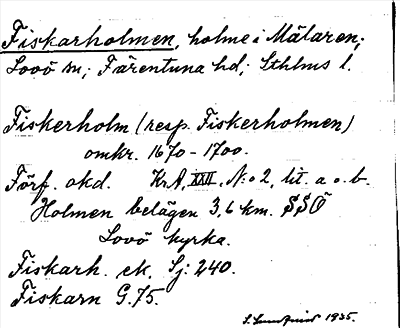 Fiskarholmen, holme i Mälaren;
Lovö sn; Färentuna hd; Sthlms l.
Fiskerholm (resp. Fiskerholmen)
omkr. 1670-1700.
Förf. okd. KrA, XXII, N:o 2, lit. a o. b.
Holmen belägen 3,6 km. SSÖ
Lovö kyrka.
Fiskarh. ek, Sj: 240.
Fiskarn G. 75.
1935.